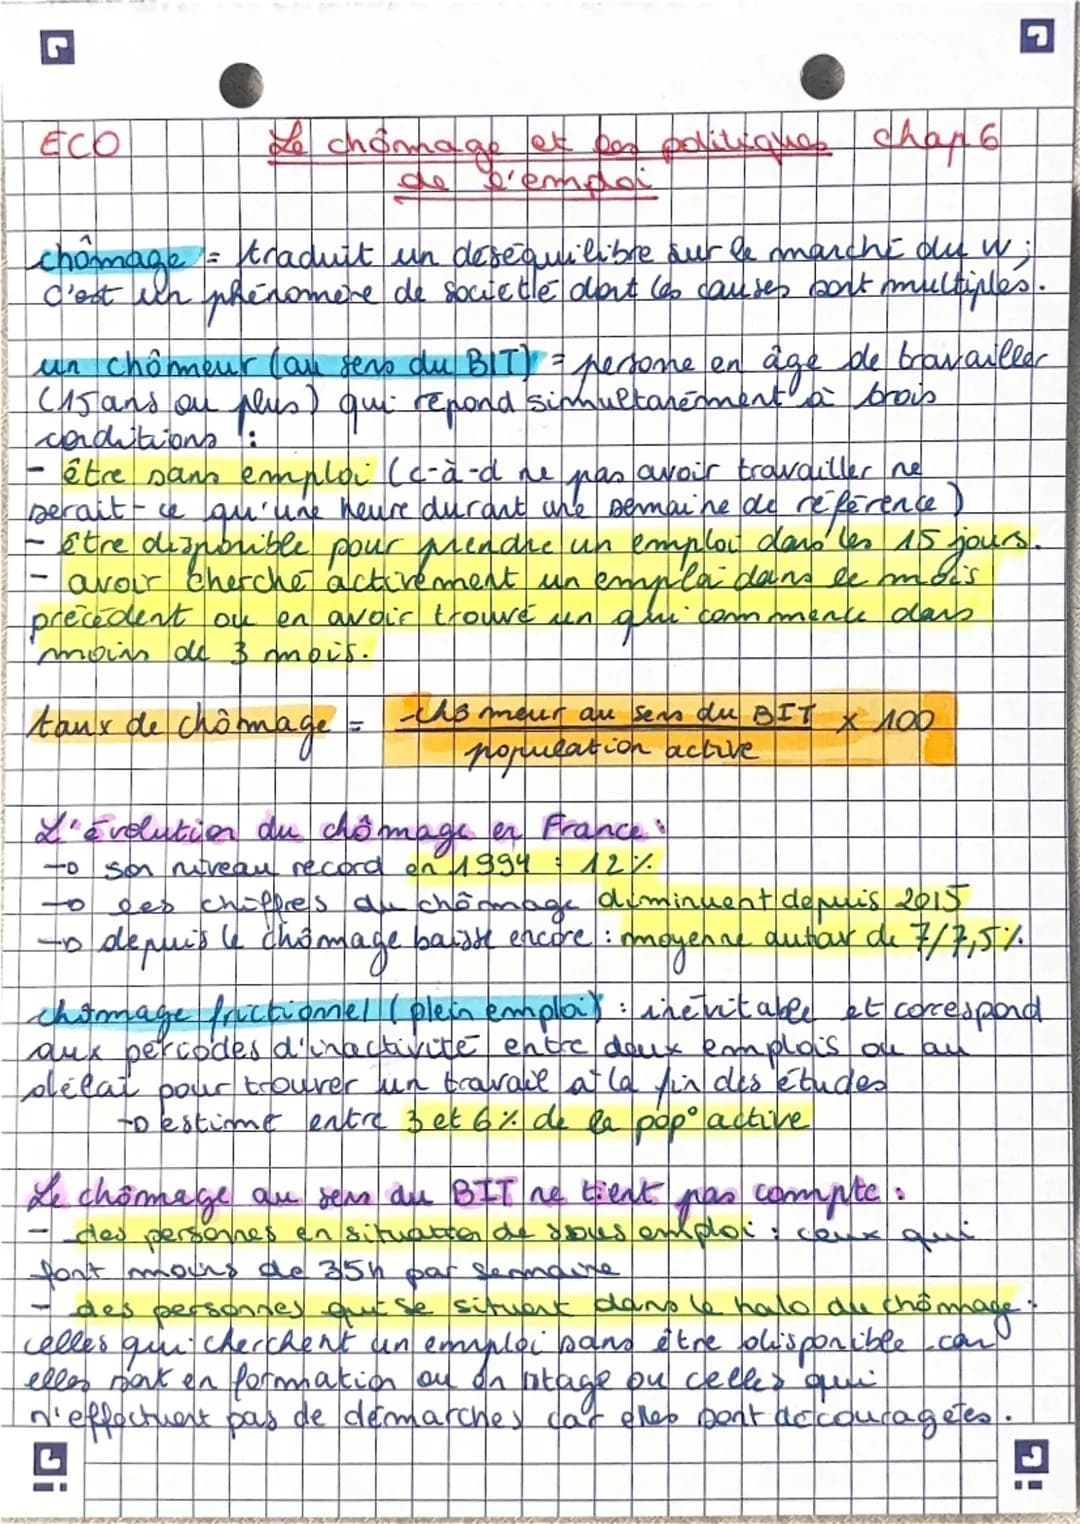 ECO Le chômage et les politiques chap 6
de l'emploi
chômage = traduit un déséquilibre sur le marché du W ;
c'est un phénomène de société dont les causes sont multiples.
un chômeur (au sens du BIT) = persone en âge de travailler
(15 ans ou plus) qui répond simultanément à trois
conditions :
- être sans emploi (c-à-d ne pas avoir travailler ne
serait-ce qu'une heure durant une semaine de référence)
- être disponible pour prendre un emploi dans les 15 jours.
- avoir cherché activement un emploi dans le mois
précédent ou en avoir trouvé un qui commence dans
moins de 3 mois.
taux de chômage = chômeur au sens du BIT x 100
population active
L'évolution du chômage en France :
→ son niveau record en 1994 : 12%
→ les chiffres du chômage diminuent depuis 2015
→ depuis le chômage baisse encore : moyenne autour de 7/7,5%.
chômage frictionnel (plein emploi) : inévitable et corespond
aux périodes d'inactivité entre deux emplois ou au
délai pour trouver un travail à la fin des études
→ estimé entre 3 et 6% de la pop° active
Le chômage au sens du BIT ne tient pas compte :
- des personnes en situation de sous emploi : ceux qui
font moins de 35h par semaine
- des personnes qui se situent dans le halo du chômage :
celles qui cherchent un emploi sans être disponible car
elles sont en formation ou en stage ou celles qui
n'effectuent pas de démarches car elles sont découragées.